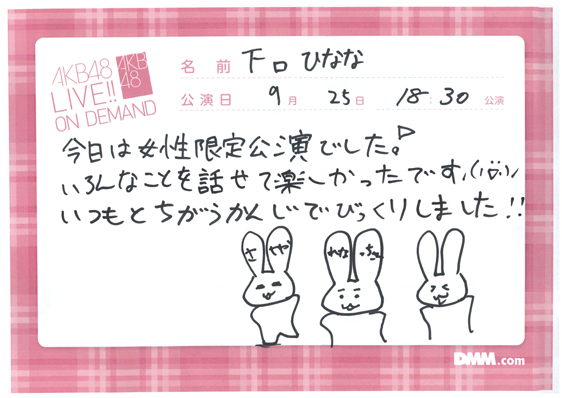 AKB48
LIVE!!
ON DEMAND
AKB
48
名 前 下口ひなな
公演日 9月 25日 18:30 公演
今日は女性限定公演でした。
いろんなことを話せて楽しかったです
いつもとちがうかんじでびっくりしました!!
さ やや
れな
DMM.com